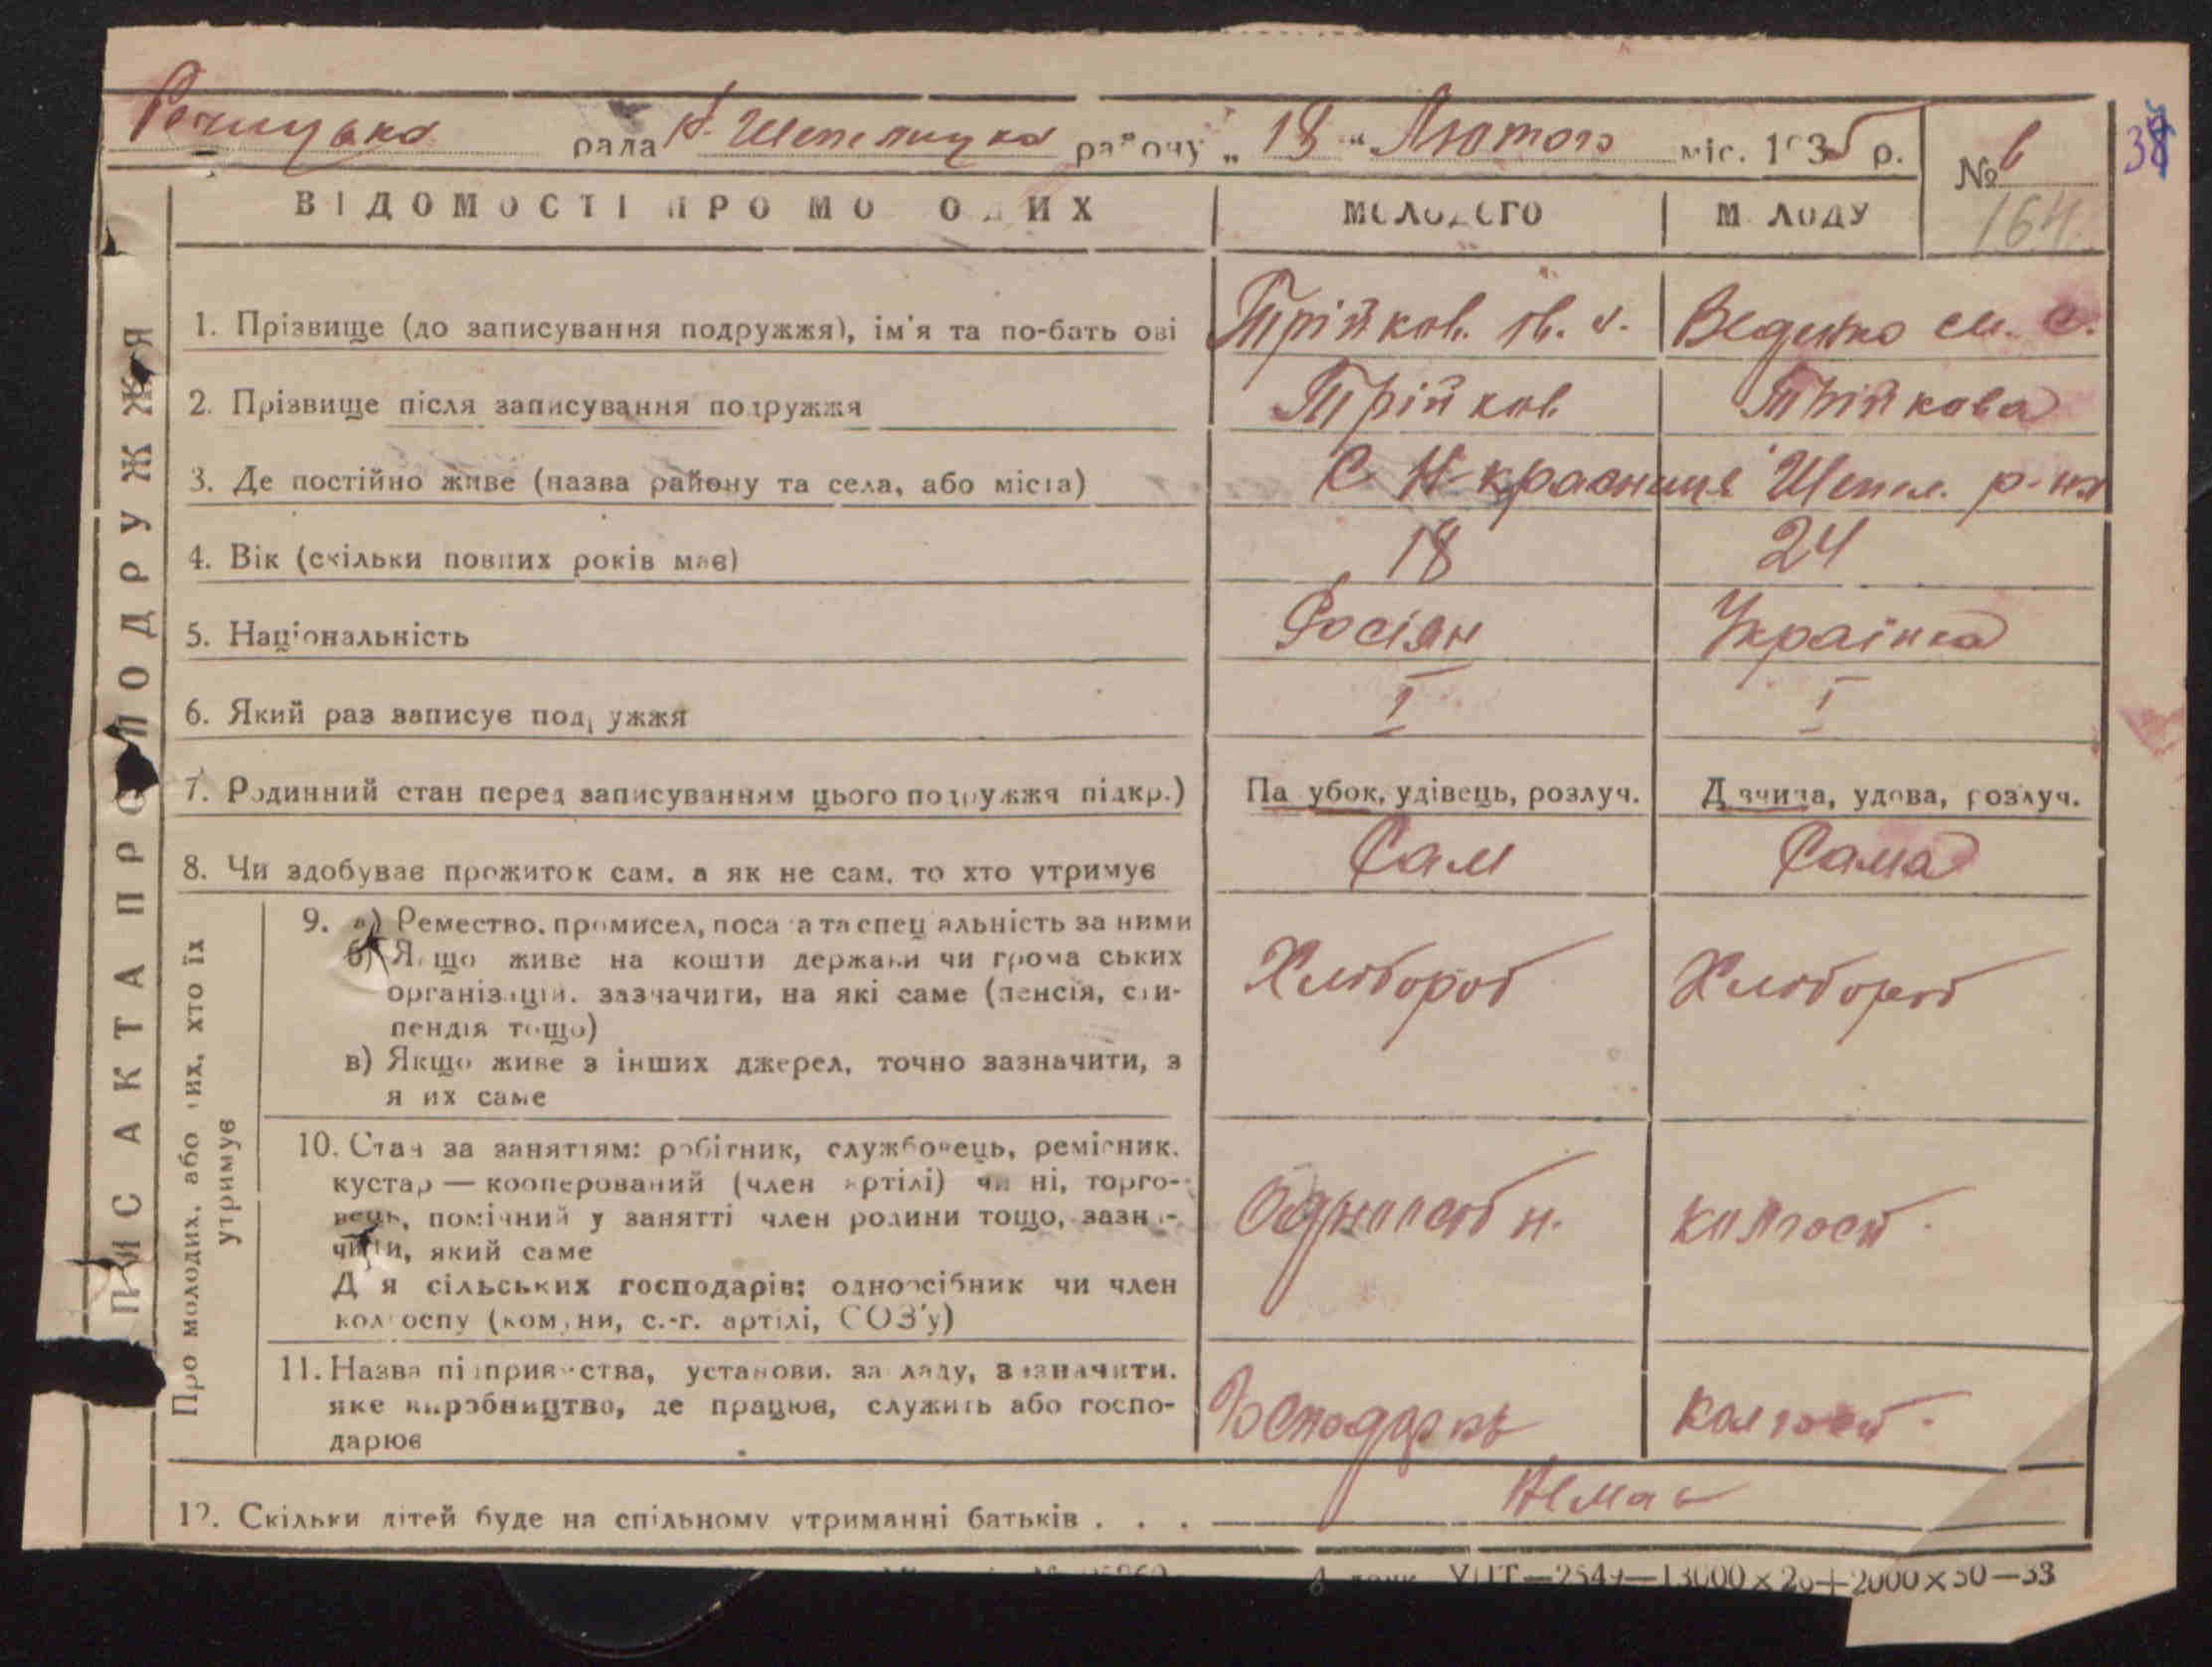 Речицька рада Н. Шепелицка району „ 18 “ Лютого міс. 1935 р.
№ 6
164
ВІДОМОСТІ ПРО МОЛОДИХ МОЛОДОГО МОЛОДУ
ПИС АКТА ПРО ПОДРУЖЖЯ
1. Прізвище (до записування подружжя), ім'я та по-батькові Трійков. Ів. Веденко
2. Прізвище після записування подружжя Трійков Трійкова
3. Де постійно живе (назва району та села, або міста) С. Н-красниця Шепел. р-на
4. Вік (скільки повних років має) 18 24
5. Національність Росіян Українка
6. Який раз записує подружжя I I
7. Родинний стан перед записуванням цього подружжя підкр.) Парубок, удівець, розлуч. Дівчина, удова, розлуч.
8. Чи здобуває прожиток сам, а як не сам, то хто утримує Сам Сама
Про молодих, або тих, хто їх
утримує
9. а) Ремество, промисел, посада та спеціальність за ними
б) Якщо живе на кошти держави чи громадських
організацій, зазначити, на які саме (пенсія, сти-
пендія тощо)
в) Якщо живе з інших джерел, точно зазначити, з
яких саме
Хлібороб Хлібороб
10. Стан за заняттям: робітник, службовець, ремісник,
кустар — кооперований (член артілі) чи ні, торго-
вець, помічний у занятті член родини тощо, зазна-
чити, який саме
Для сільських господарів: одноосібник чи член
колгоспу (комуни, с.-г. артілі, СОЗ'у)
Одноособн. колгосп.
11. Назва підприємства, установи, закладу, зазначити,
яке виробництво, де працює, служить або госпо-
дарює
Господарь колгосп.
12. Скільки дітей буде на спільному утриманні батьків . . . Немає
УПТ—2549—13000×20+2000×50—33